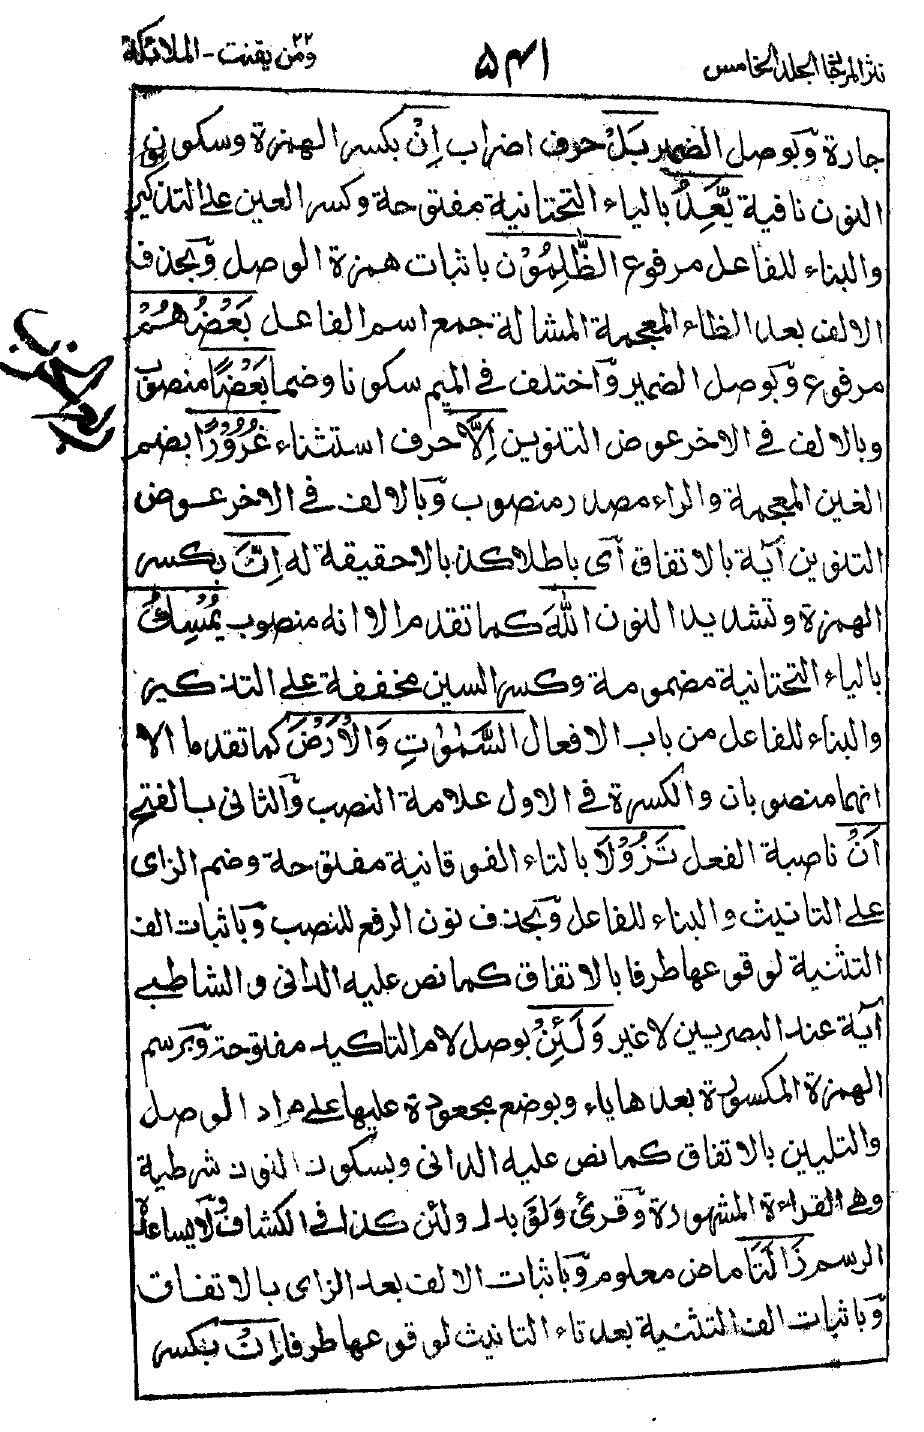 نثر المرجان الجلد الخامس ۵۴۱ ومن يقنت ٢٢ - الملائكة
جارة وبوصل الضمير بَلْ حرف اضراب اِنْ بكسر الهمزة وسكون
النون نافية يَّعِدُ بالياء التحتانية مفتوحة وكسر العين على التذكير
والبناء للفاعل مرفوع الظّٰلِمُوْنَ باثبات همزة الوصل وبحذف
الالف بعد الظاء المعجمة المشالة جمع اسم الفاعل بَعْضُهُمْ
مرفوع وبوصل الضمير واختلف في الميم سكونا وضما بَعْضًا منصوب
وبالالف في الاخر عوض التنوين اِلَّا حرف استثناء غُرُوْرًا بضم
الغين المعجمة والراء مصدر منصوب وبالالف في الاخر عوض
التنوين آية بالاتفاق أى باطلا كذبا لاحقيقة له اِنَّ بكسر
الهمزة وتشديد النون اللّٰهَ كما تقدم الا انه منصوب يُمْسِكُ
بالياء التحتانية مضمومة وكسر السين مخففة على التذكير
والبناء للفاعل من باب الافعال السَّمٰوٰتِ وَالْاَرْضَ كما تقدما الا
انهما منصوبان والكسرة في الاول علامة النصب والثانى بالفتح
اَنْ ناصبة الفعل تَزُوْلَا بالتاء الفوقانية مفتوحة وضم الزاى
على التانيث والبناء للفاعل وبحذف نون الرفع للنصب وباثبات الف
التثنية لوقوعها طرفا بالاتفاق كما نص عليه الدانى والشاطبى
آية عند البصريين لاغير وَلَئِنْ بوصل لام التاكيد مفتوحة وبرسم
الهمزة المكسورة بعدها ياء وبوضع مجعودة عليها على مراد الوصل
والتليين بالاتفاق كما نص عليه الدانى وبسكون النون شرطية
وهى القراءة المشهورة وقرئ وَلَوْ بدل ولئن كذا فى الكشاف ولا يساعده
الرسم زَالَتَا ماض معلوم وباثبات الالف بعد الزاى بالاتفاق
وباثبات الف التثنية بعد تاء التانيث لوقوعها طرفا اِنْ بكسر